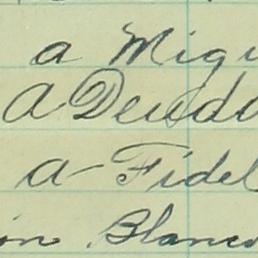 a Migu
A Deudo
a - Fidel
ón Blanco